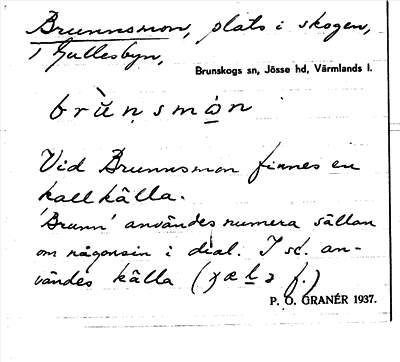 Brunnsmon, plats i skogen,
i Gullesbyn,
Brunskogs sn, Jösse hd, Värmlands l.
brùṇsmòn
Vid Brunnsmon finnes en
kallkälla.
'Brunn' användes numera sällan
om någonsin i dial. I st. an-
vändes källa (f.)
P. O. GRANÉR 1937.